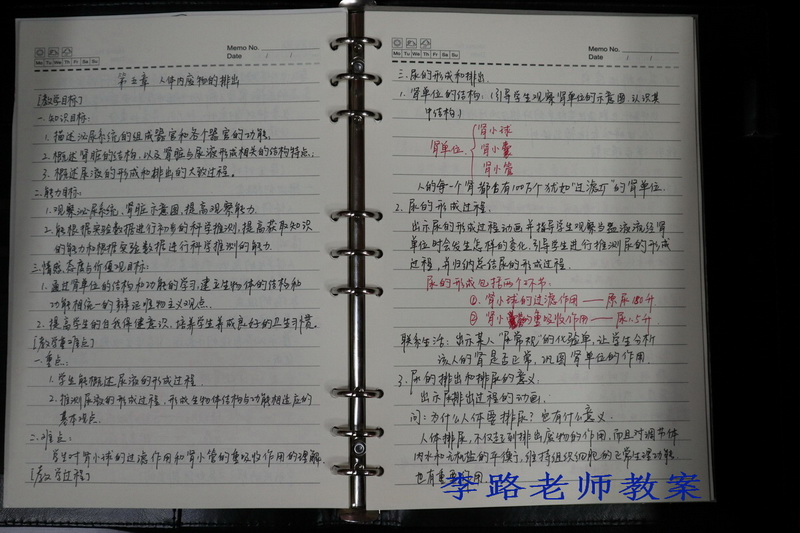 Memo No.
Mo Tu We Th Fr Sa Su
Date / /
第五章 人体内废物的排出
[教学目标]
一.知识目标:
1.描述泌尿系统的组成器官和各个器官的功能。
2.概述肾脏的结构,以及肾脏与尿液形成相关的结构特点;
3.概述尿液的形成和排出的大致过程。
二.能力目标:
1.观察泌尿系统、肾脏示意图,提高观察能力.
2.能根据实验数据进行初步的科学推测,提高获取知识
的能力和根据实验数据进行科学推测的能力.
三.情感、态度与价值观目标:
1.通过肾单位的结构和功能的学习,建立生物体的结构和
功能相统一的辩证唯物主义观点.
2.提高学生的自我保健意识,培养学生养成良好的卫生习惯.
[教学重难点]
一.重点:
1.学生能概述尿液的形成过程.
2.推测尿液的形成过程,形成生物体结构与功能相适应的
基本观点.
二.难点:
学生对肾小球的过滤作用和肾小管的重吸收作用的理解.
[教学过程]
Memo No.
Mo Tu We Th Fr Sa Su
Date / /
三.尿的形成和排出.
1.肾单位的结构:(引导学生观察肾单位的示意图,认识其
中结构)
肾小球
肾单位 肾小囊
肾小管
人的每一个肾都含有100万个犹如"过滤器"的肾单位.
2.尿的形成过程.
出示尿的形成过程动画并指导学生观察当血液流经肾
单位时会发生怎样的变化,引导学生进行推测尿的形成
过程,并归纳总结尿的形成过程.
尿的形成包括两个环节:
①.肾小球的过滤作用——原尿180升
②.肾小管的重吸收作用——尿1.5升
联系生活:出示某人"尿常规"的化验单,让学生分析
该人的肾是否正常,巩固肾单位的作用.
3.尿的排出和排尿的意义:
出示尿排出过程的动画.
问:为什么人体要排尿?也有什么意义.
人体排尿,不仅起到排出废物的作用,而且对调节体
内水和无机盐的平衡,维持组织细胞的正常生理功能
也有重要作用.
李路老师教案